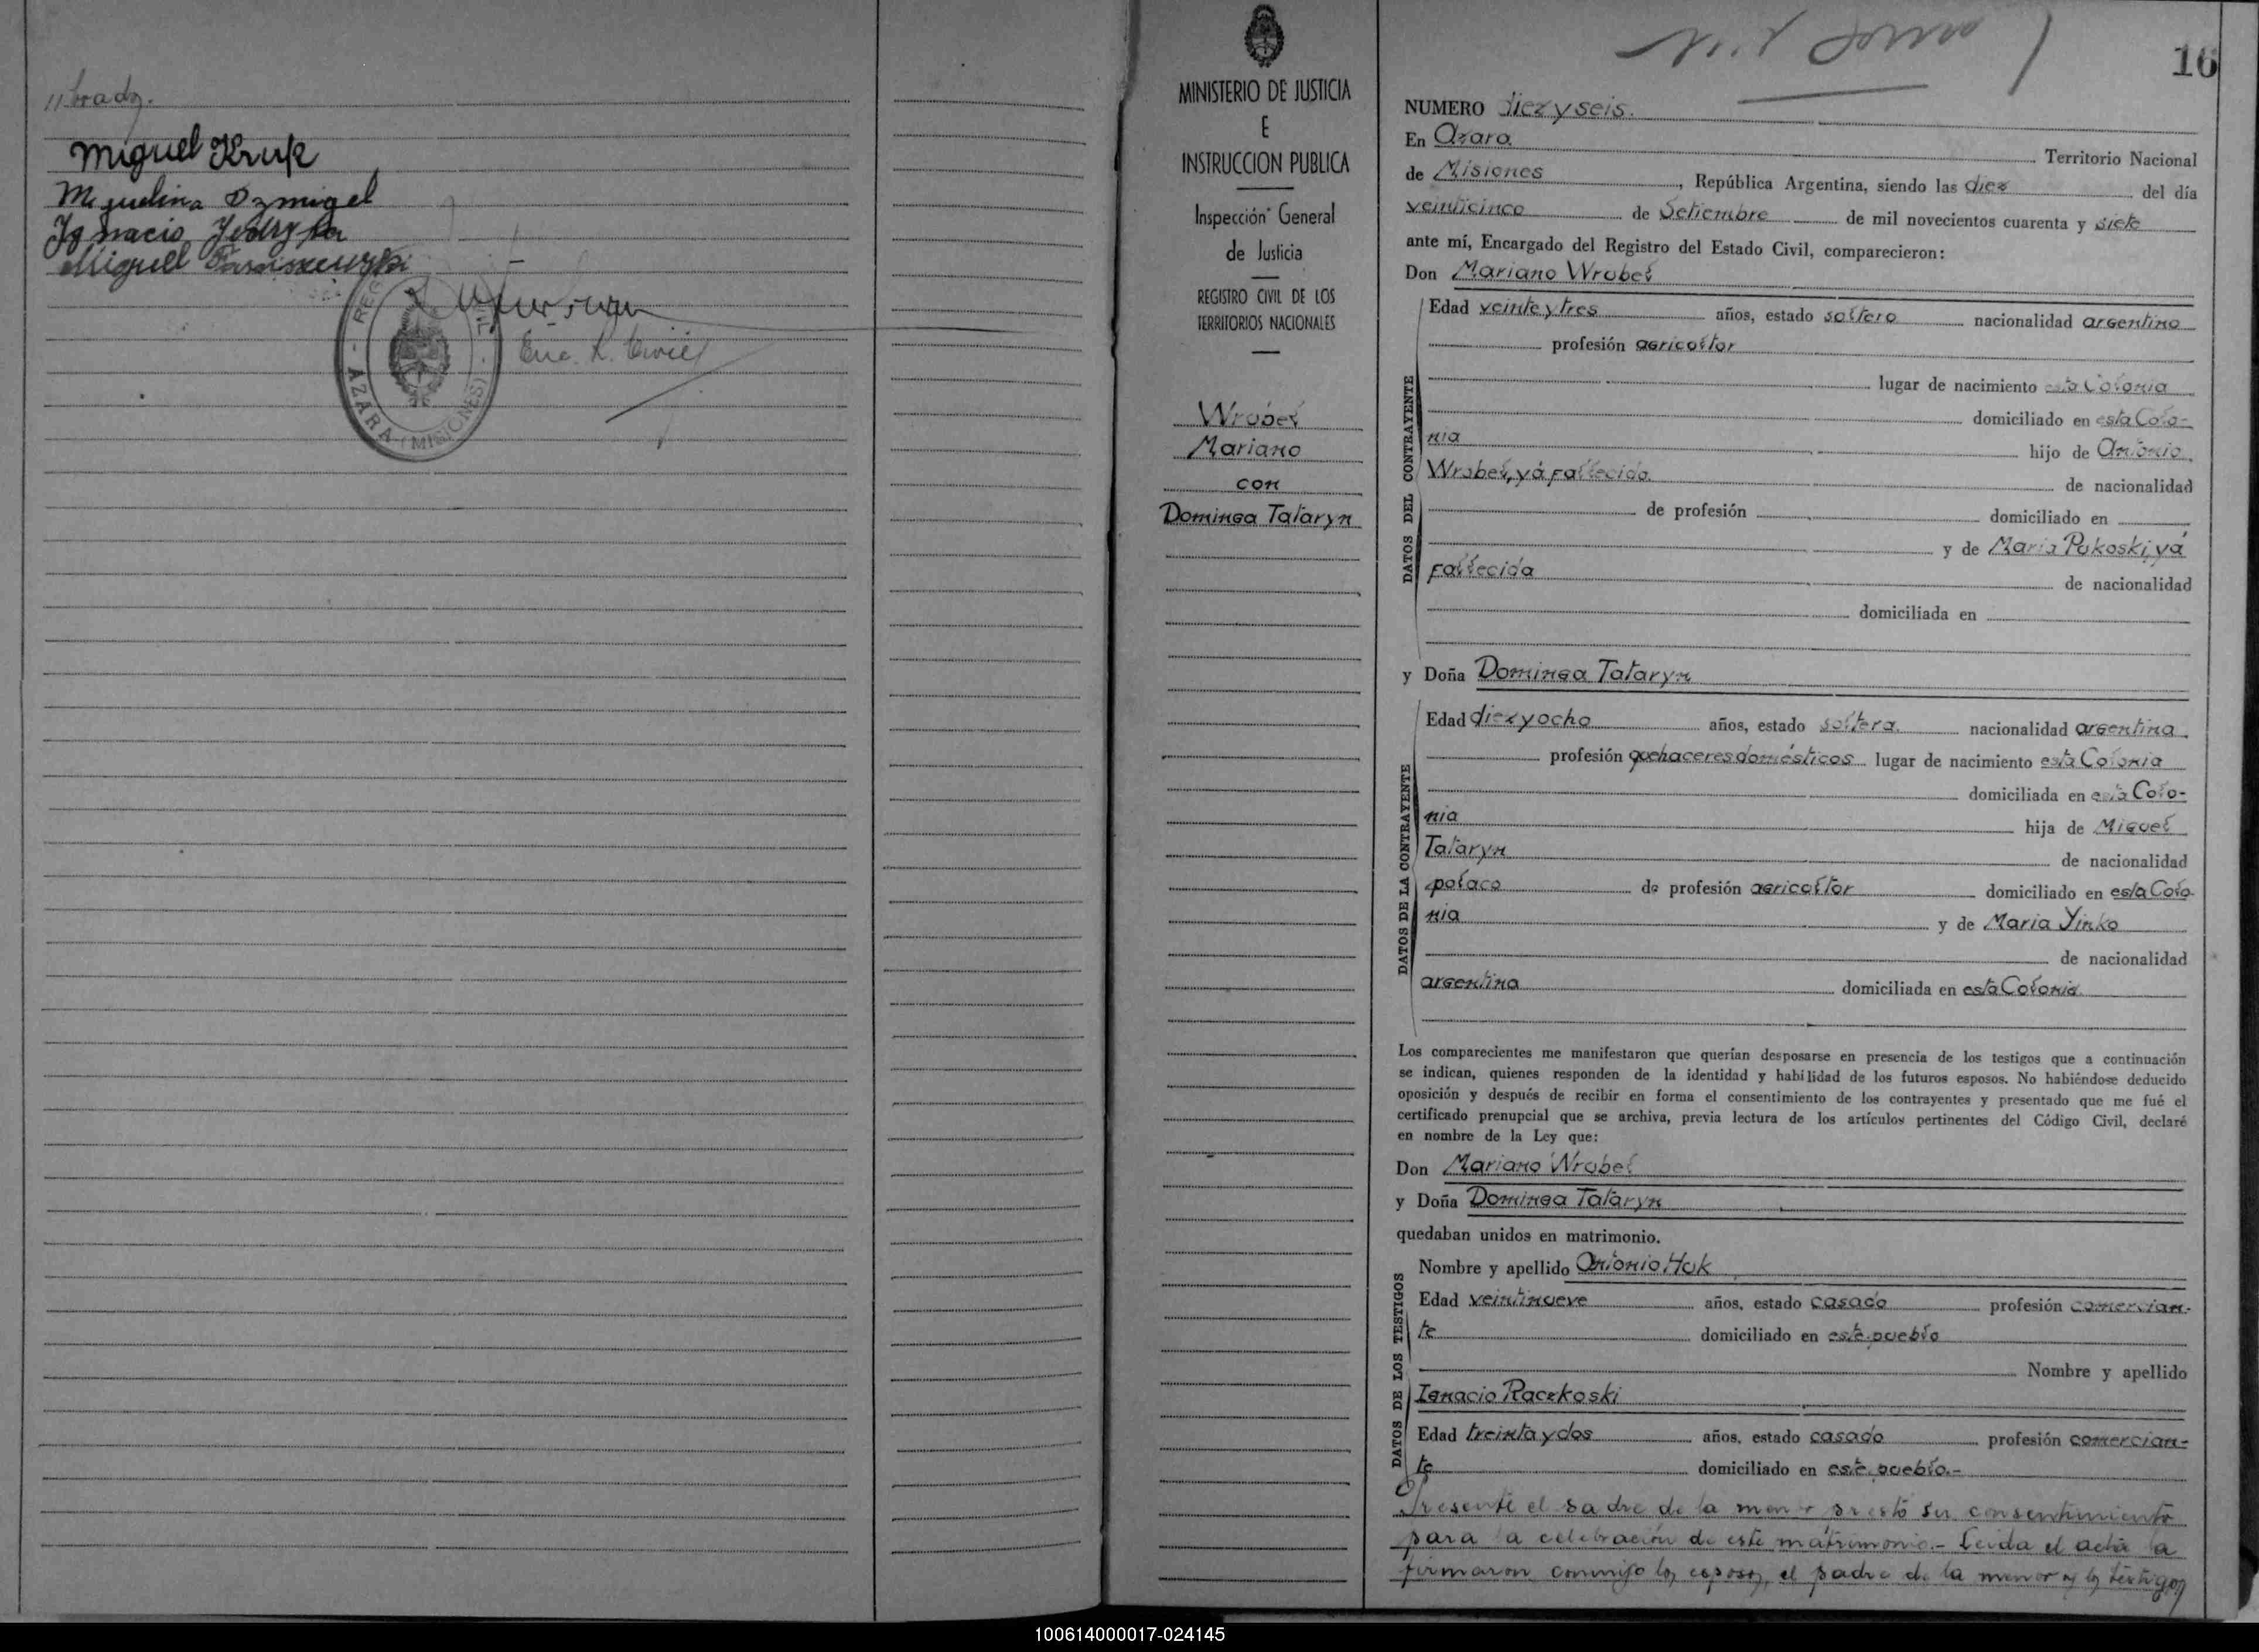 Miguel Kruk
Miguelina Dzmigel
Ignacio
Miguel
Enc. R. Civil
AZARA (MISIONES)
MINISTERIO DE JUSTICIA
E
INSTRUCCION PUBLICA
Inspección General
de Justicia
REGISTRO CIVIL DE LOS
TERRITORIOS NACIONALES
Wrobel
Mariano
con
Dominga Tataryn
16
NUMERO diez y seis.
En Azara. Territorio Nacional
de Misiones, República Argentina, siendo las diez del día
veinticinco de Setiembre de mil novecientos cuarenta y siete
ante mí, Encargado del Registro del Estado Civil, comparecieron:
Don Mariano Wrobel
DATOS DEL CONTRAYENTE
Edad veinte y tres años, estado soltero nacionalidad argentino
profesión agricoltor
lugar de nacimiento esta Colonia
domiciliado en esta Colo-
nia hijo de Antonio
Wrobel, yá fallecido. de nacionalidad
de profesión domiciliado en
y de Maria Pukoski, yá
fallecida de nacionalidad
domiciliada en
y Doña Dominga Tataryn
DATOS DE LA CONTRAYENTE
Edad diez y ocho años, estado soltera. nacionalidad argentina.
profesión quehaceres domésticos lugar de nacimiento esta Colonia
domiciliada en esta Colo-
nia hija de Miguel
Tataryn de nacionalidad
polaco de profesión agricoltor domiciliado en esta Colo-
nia y de Maria Yinko
de nacionalidad
argentina domiciliada en esta Colonia.
Los comparecientes me manifestaron que querían desposarse en presencia de los testigos que a continuación
se indican, quienes responden de la identidad y habilidad de los futuros esposos. No habiéndose deducido
oposición y después de recibir en forma el consentimiento de los contrayentes y presentado que me fué el
certificado prenupcial que se archiva, previa lectura de los artículos pertinentes del Código Civil, declaré
en nombre de la Ley que:
Don Mariano Wrobel
y Doña Dominga Tataryn
quedaban unidos en matrimonio.
DATOS DE LOS TESTIGOS
Nombre y apellido Antonio Huk
Edad veintinueve años, estado casado profesión comercian-
te domiciliado en este pueblo
Nombre y apellido
Ignacio Raczkoski
Edad treinta y dos años, estado casado profesión comercian-
te domiciliado en este pueblo.-
Presente el padre de la menor prestó su consentimiento
para la celebración de este mátrimonio.- Leida el acta la
firmaron conmigo los esposos, el padre de la menor y los testigos
100614000017-024145